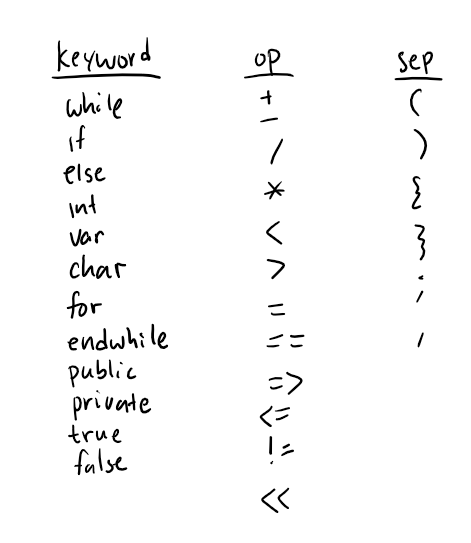 keyword
while
if
else
int
var
char
for
endwhile
public
private
true
false
op
+
-
/
*
<
>
=
==
=>
<=
!=
<<
sep
(
)
{
}
;
,